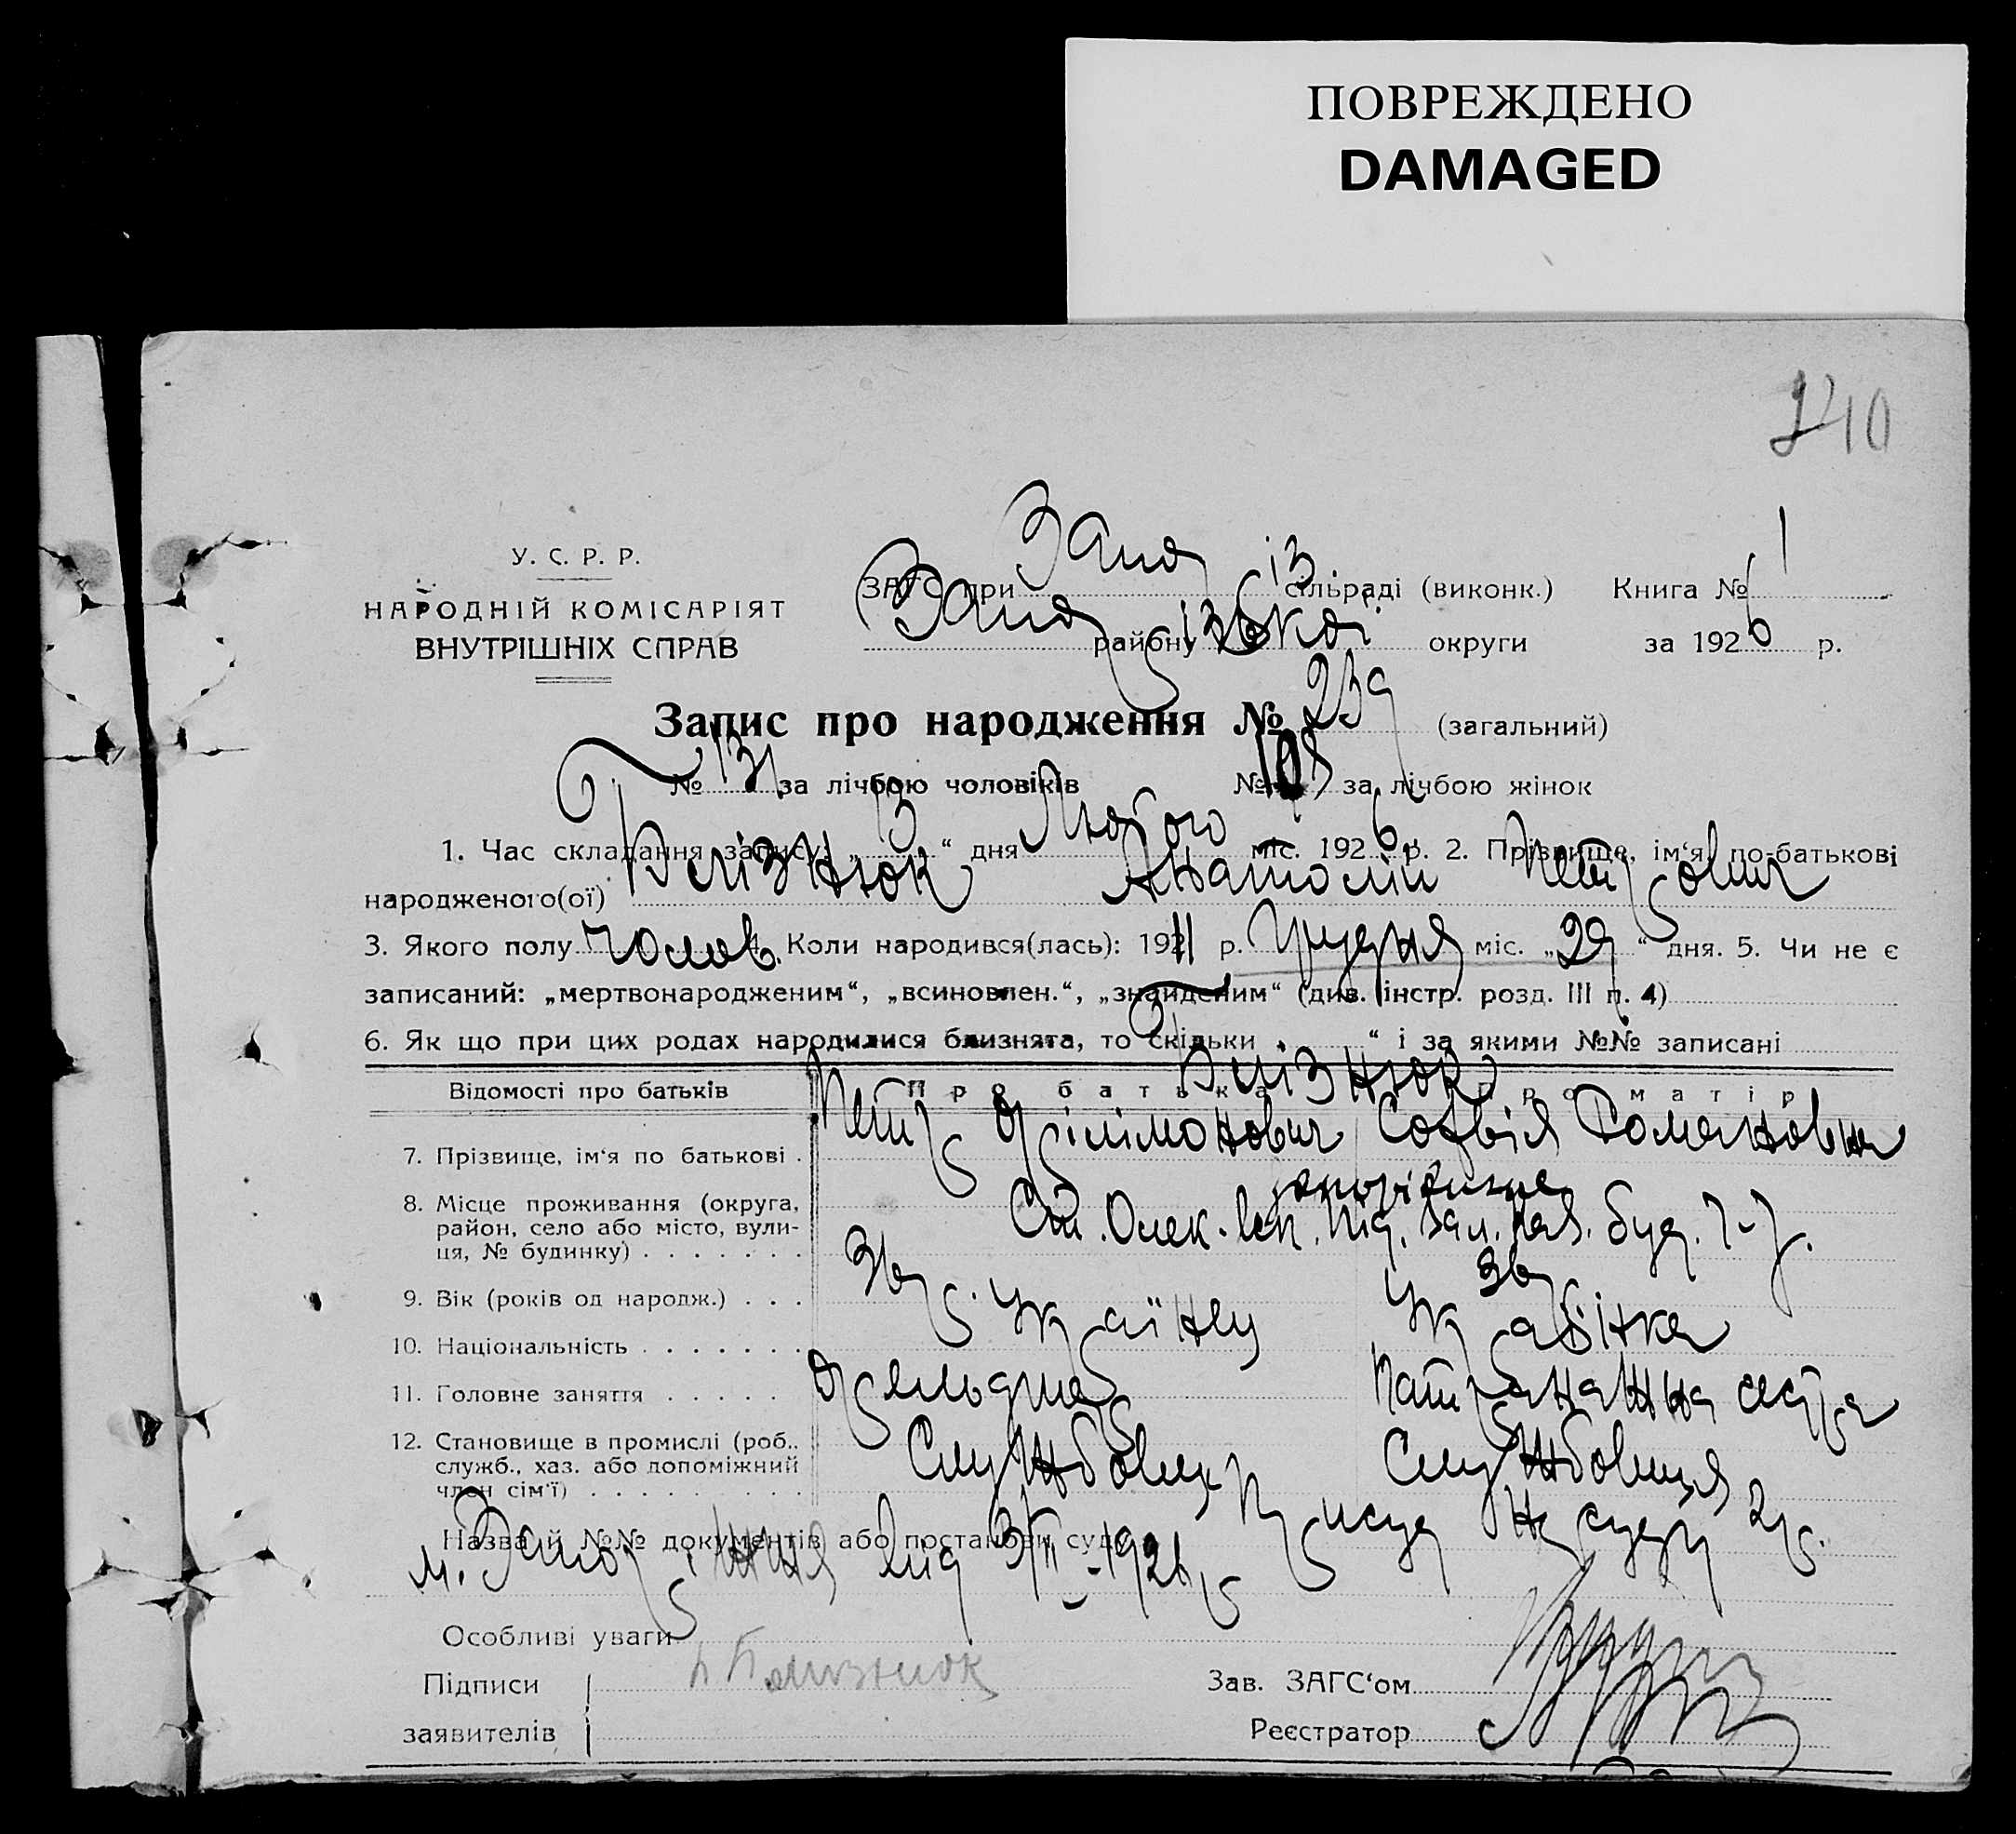 ПОВРЕЖДЕНО
DAMAGED
У. С. Р. Р.
НАРОДНІЙ КОМІСАРІЯТ
ВНУТРІШНІХ СПРАВ
ЗАГС при Запор сільраді (виконк.) Книга № 1
району округи за 1926 р.
Запис про народження № 239 (загальний)
№ 131 за лічбою чоловіків № 108 за лічбою жінок
1. Час складання запису: „13“ дня Лютого міс. 1926 р. 2. Прізвище, ім‘я, по-батькові
народженого(ої) Близнюк Анатолій Петрович
3. Якого полу Чолов. 4. Коли народився(лась): 1911 р. Грудня міс. „29“ дня. 5. Чи не є
записаний: „мертвонародженим“, „всиновлен.“, „знайденим“ (див. інстр. розд. III п. 4)
6. Як що при цих родах народилися близнята, то скільки „ “ і за якими №№ записані
Відомості про батьків Про батька Про матір
Близнюк
7. Прізвище, ім‘я по батькові . Петр Филімонович Софвія Романовна
8. Місце проживання (округа,
район, село або місто, вули-
ця, № будинку) . . . . . . . Ст. Олек. буд. 7-
9. Вік (років од народж.) . . . 36 р. 36 р.
10. Національність . . . . . . . Українец Українка
11. Головне заняття . . . . . Фельдшер Патранажна сестра
12. Становище в промислі (роб..
служб., хаз. або допоміжний
член сім‘ї) . . . . . . . . . Службовец Службовиця
Назва й №№ документів або постанови суду
м. Запоріжжя від 3/II-1926 р.
Особливі уваги
Підписи П Близнюк Зав. ЗАГС‘ом
заявителів Реєстратор